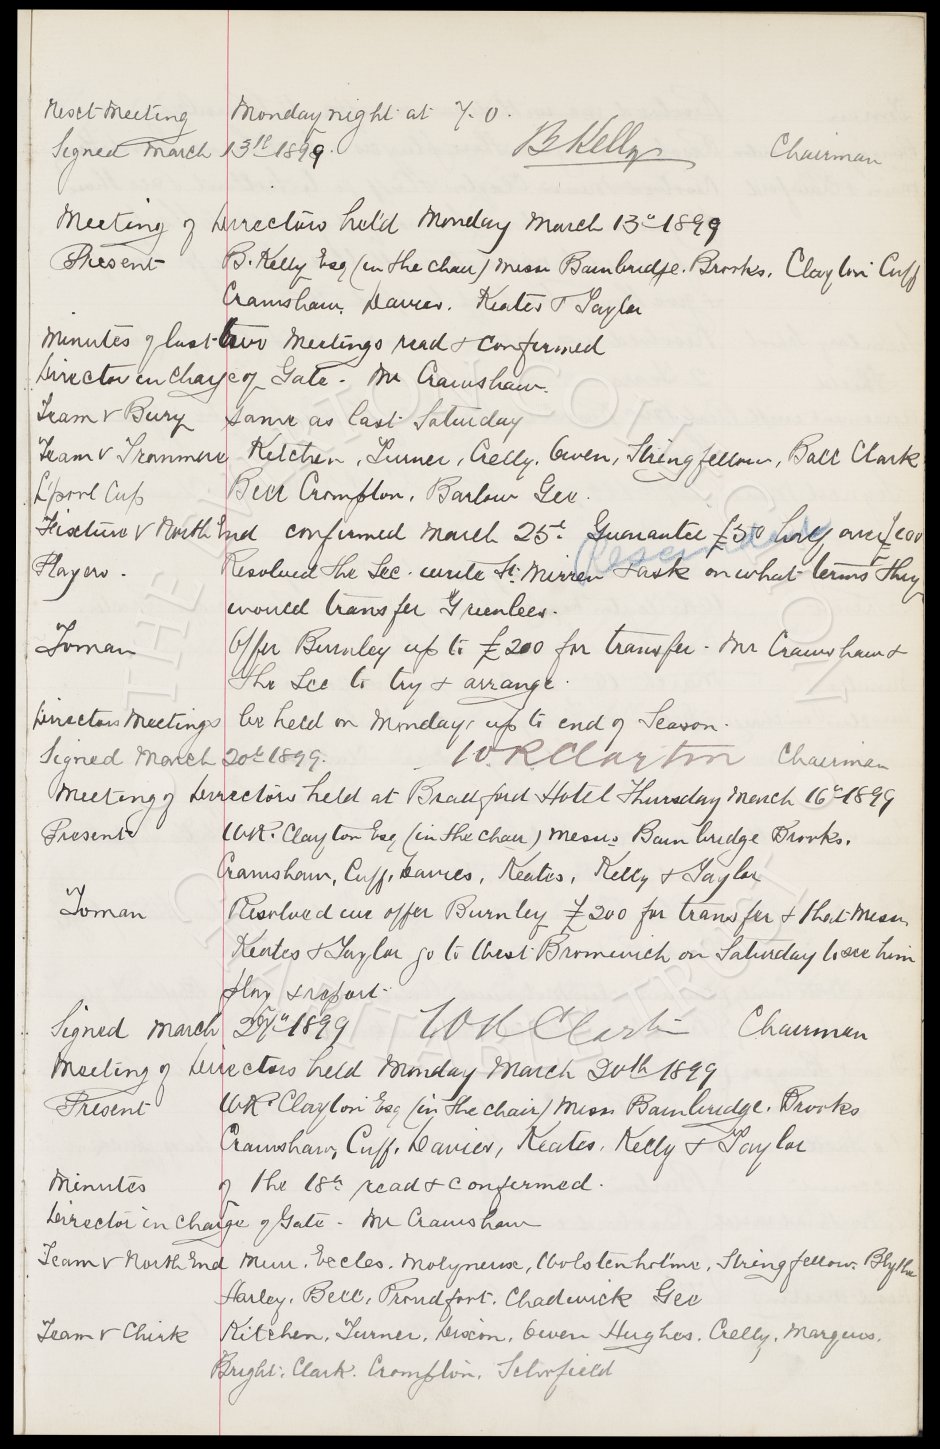 Next Meeting Monday night at 7.0.
Signed March 13th 1899. B Kelly Chairman
Meeting of Directors held Monday March 13th 1899
Present B. Kelly Esq (in the chair) Messrs Bainbridge. Brooks. Clayton Cuff
Crawshaw. Davies. Keates & Taylor
Minutes of last two Meetings read & confirmed
Director in Charge of Gate - Mr Crawshaw.
Team v Bury same as last Saturday
Team v Tranmere Kitchen, Turner, Crelly, Owen, Stringfellow, Ball Clark
L'pool Cup Bell Crompton, Barlow Gee.
Fixture v North End confirmed March 25th Guarantee £50 half over £100
Rescinded
Players. Resolved the Sec. write St. Mirren & ask on what terms they
would transfer Greenlees.
Toman Offer Burnley up to £200 for transfer - Mr Crawshaw &
the Sec to try & arrange.
Directors Meetings be held on Mondays up to end of Season.
Signed March 20th 1899. W.R. Clayton Chairman
Meeting of Directors held at Bradford Hotel Thursday March 16th 1899
Present WR. Clayton Esq (in the chair) Messrs Bainbridge Brooks.
Crawshaw, Cuff, Davies, Keates, Kelly & Taylor
Toman Resolved we offer Burnley £200 for transfer & that Messrs
Keates & Taylor go to West Bromwich on Saturday to see him
play & report.
Signed March 27th 1899 W R Clayton Chairman
Meeting of Directors held Monday March 20th 1899
Present WR. Clayton Esq (in the chair) Messrs Bainbridge. Brooks
Crawshaw, Cuff, Davies, Keates. Kelly & Taylor
Minutes of the 18th read & confirmed.
Director in charge of Gate - Mr Crawshaw
Team v North End Muir. Eccles. Molyneux, Wolstenholme, Stringfellow. Blythe
Farley. Bell, Proudfoot. Chadwick Gee
Team v Chirk Kitchen. Turner. Dixon. Owen Hughes. Crelly. Marquis.
Bright. Clark. Crompton. Schofield
THE EVERTON COLLECTION
CHARITABLE TRUST